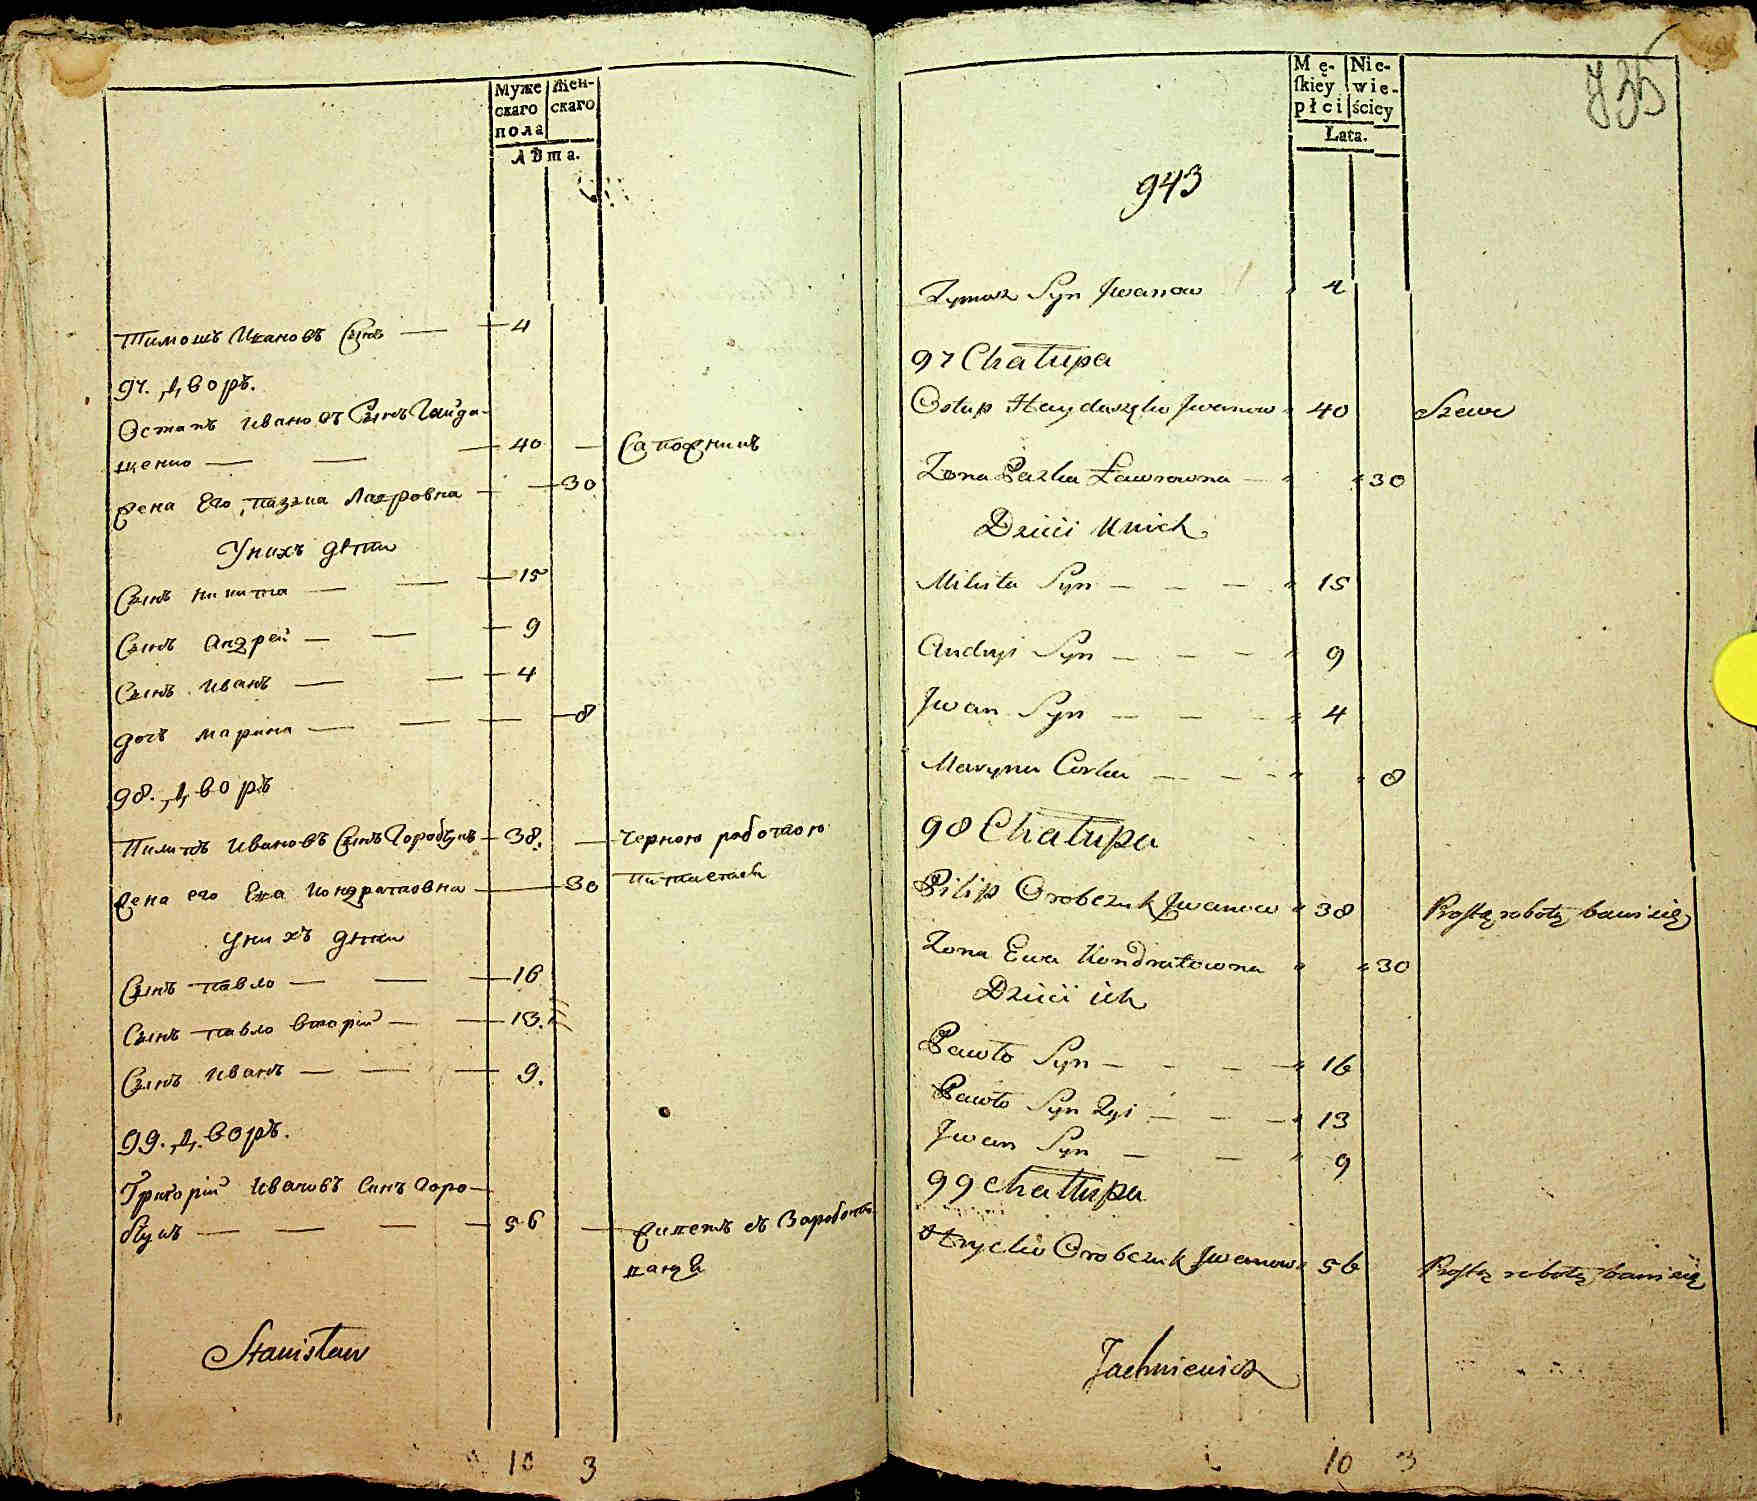 Муже
скаго
пола
Жен-
скаго
лѢта.
Тимошъ Ивановъ Сынъ — 4
97. Дворъ.
Остапъ Ивановъ Сынъ Гайда-
щенко — — 40 — Сапожникъ
Жена Его Пазька Лавровна — 30
Унихъ дѣти
Сынъ Никита — 15
Сынъ Андрей — — 9
Сынъ Иванъ — — 4
дочь Марина — — — 8
98. Дворъ
Пилипъ Ивановъ Сынъ Горобчукъ 38. — черною работою
Жена его Ева Кондратовна — 30 питается
Унихъ дѣти
Сынъ Павло — — 16
Сынъ Павло вторій — — 13.
Сынъ Иванъ — — 9.
99. Дворъ.
Григорій Ивановъ Синъ Горо-
бчукъ — — — 56 — живетъ съ Заработ
Stanisław
10 3
Mę-
skiey
płci
Nie-
wie-
ściey
Lata.
735
943
Tymosz Syn Jwanow 4
97 Chałupa
Ostap Hayduszko Jwanow 40 Szewc
Zona Pazka Ławrowna — 30
Dzieci u nich
Mikita Syn — — — 15
Andryi Syn — — — 9
Jwan Syn — — — 4
Maryna Corka — — — 8
98 Chałupa
Pilip Orobczuk Jwanow 38 Prostą robotą bawi się
Zona Ewa Kondratowna 30
Dzieci ich
Pawło Syn — — — 16
Pawło Syn 2gi — — — 13
Jwan Syn — — 9
99 Chałupa
Hrycko Orobczuk Jwanow 56 Prostą robotą bawi się
Jachniewicz
10 3